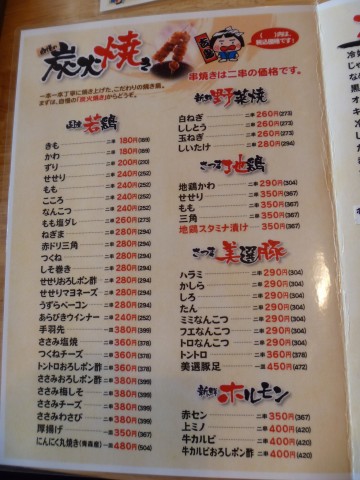 自慢の
炭火焼き
一本一本丁寧に焼き上げた、こだわりの焼き鳥。
まずは、自慢の「炭火焼き」からどうぞ。
( )内は、
税込価格です!
串焼きは二串の価格です。
国産 若鶏
きも 二串 180円(189)
かわ 二串 180円(189)
ずり 二串 200円(210)
せせり 二串 240円(252)
もも 二串 240円(252)
こころ 二串 240円(252)
なんこつ 二串 240円(252)
もも塩ダレ 二串 260円(273)
ねぎま 二串 280円(294)
赤ドリ三角 二串 280円(294)
つくね 二串 280円(294)
しそ巻き 二串 280円(294)
せせりおろしポン酢 二串 280円(294)
せせりマヨネーズ 二串 280円(294)
うずらベーコン 二串 280円(294)
あらびきウインナー 二串 240円(252)
手羽先 二串 380円(399)
ささみ塩焼 二串 360円(378)
つくねチーズ 二串 360円(378)
トントロおろしポン酢 二串 360円(378)
ささみおろしポン酢 二串 380円(399)
ささみ梅しそ 二串 380円(399)
ささみチーズ 二串 380円(399)
ささみわさび 二串 380円(399)
厚揚げ 一皿 350円(367)
にんにく丸焼き(青森産) 一皿 480円(504)
新鮮 野菜焼
白ねぎ 二串 260円(273)
ししとう 二串 260円(273)
玉ねぎ 二串 260円(273)
しいたけ 二串 280円(294)
さつま 地鶏
地鶏かわ 二串 290円(304)
せせり 二串 350円(367)
もも 二串 350円(367)
三角 二串 350円(367)
地鶏スタミナ漬け 二串 350円(367)
さつま 美選豚
ハラミ 二串 290円(304)
かしら 二串 290円(304)
しろ 二串 290円(304)
たん 二串 290円(304)
ミミなんこつ 二串 290円(304)
フエなんこつ 二串 290円(304)
トロなんこつ 二串 290円(304)
トントロ 二串 360円(378)
美選豚足 一皿 450円(472)
新鮮 ホルモン
赤セン 二串 350円(367)
上ミノ 二串 400円(420)
牛カルビ 二串 400円(420)
牛カルビおろしポン酢 二串 400円(420)